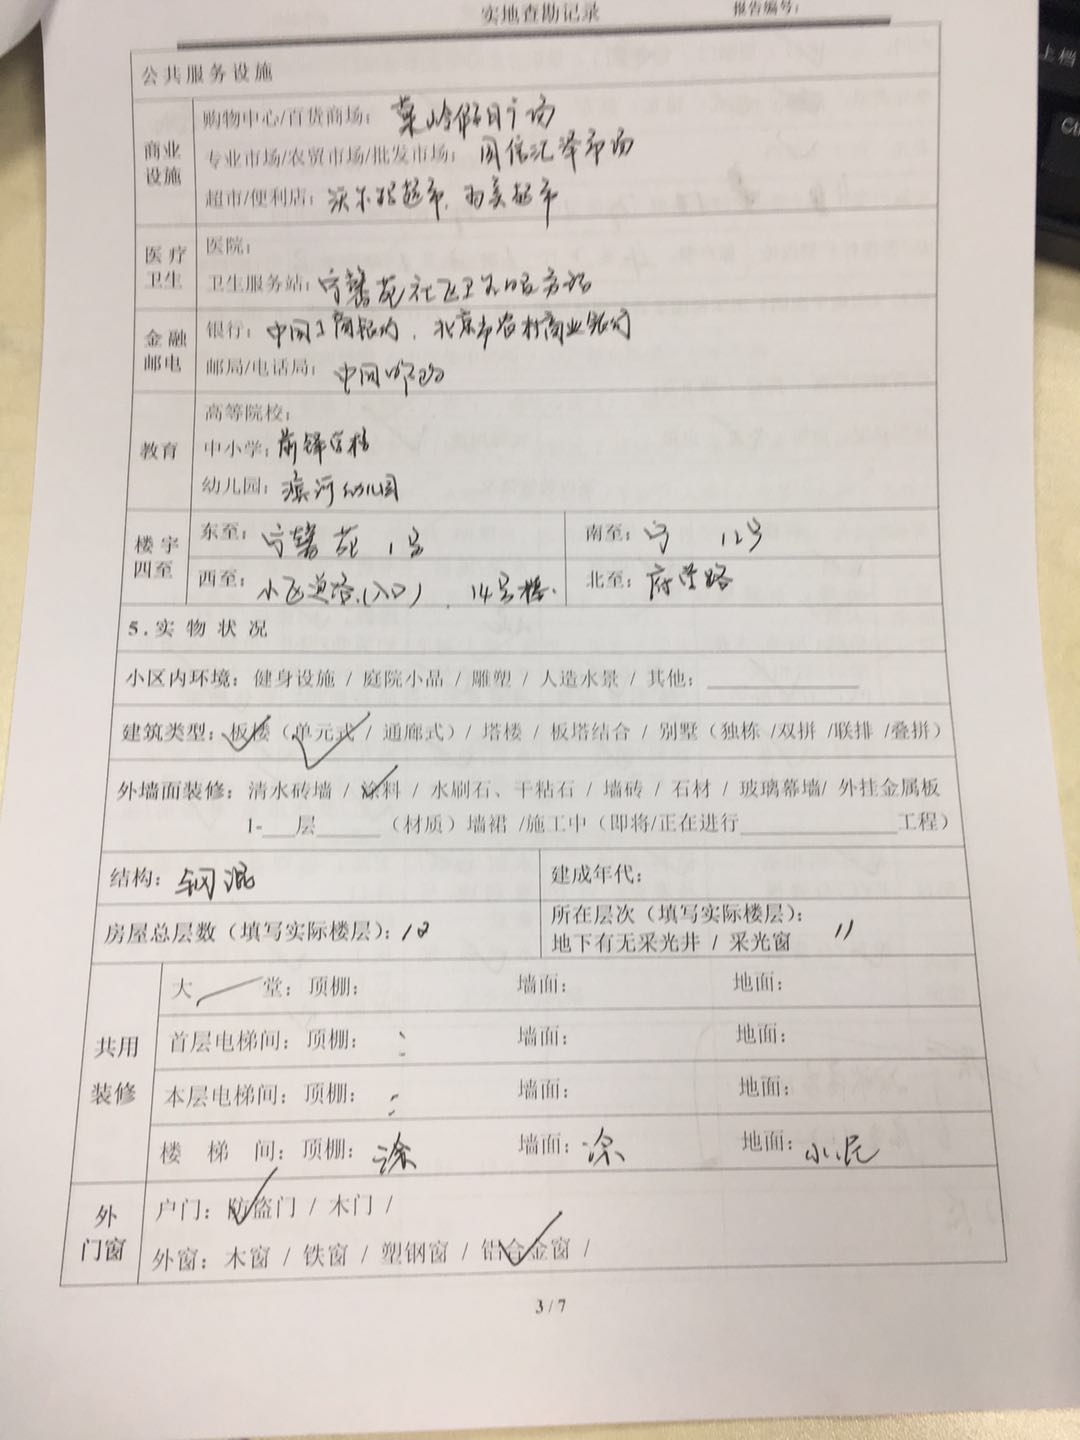 实地查勘记录 报告编号:
上档
公共服务设施
商业设施 购物中心/百货商场: 菓岭假日广场
专业市场/农贸市场/批发市场: 国信汇泽市场
超市/便利店: 沃尔玛超市,
医疗卫生 医院:
卫生服务站: 宁馨苑社区卫生服务站
金融邮电 银行: 中国工商银行, 北京市农村商业银行
邮局/电话局: 中国邮政
教育 高等院校:
中小学: 前锋学校
幼儿园: 滨河幼儿园
楼宇四至 东至: 宁馨苑 1号 南至: 宁 12号
西至: 小区道路(入口), 14号楼. 北至: 府学路
5.实物状况
小区内环境: 健身设施 / 庭院小品 / 雕塑 / 人造水景 / 其他:
建筑类型: 板楼(单元式 / 通廊式)/ 塔楼 / 板塔结合 / 别墅(独栋 /双拼 /联排 /叠拼)
外墙面装修: 清水砖墙 / 涂料 / 水刷石、干粘石 / 墙砖 / 石材 / 玻璃幕墙/ 外挂金属板
1-___层______(材质)墙裙 /施工中(即将/正在进行______________工程)
结构: 钢混 建成年代:
房屋总层数(填写实际楼层): 所在层次(填写实际楼层): 11
地下有无采光井 / 采光窗
共用装修 大 堂: 顶棚: 墙面: 地面:
首层电梯间: 顶棚: 墙面: 地面:
本层电梯间: 顶棚: 墙面: 地面:
楼 梯 间: 顶棚: 涂 墙面: 涂 地面: 水泥
外门窗 户门: 防盗门 / 木门 /
外窗: 木窗 / 铁窗 / 塑钢窗 / 铝合金窗 /
3 / 7